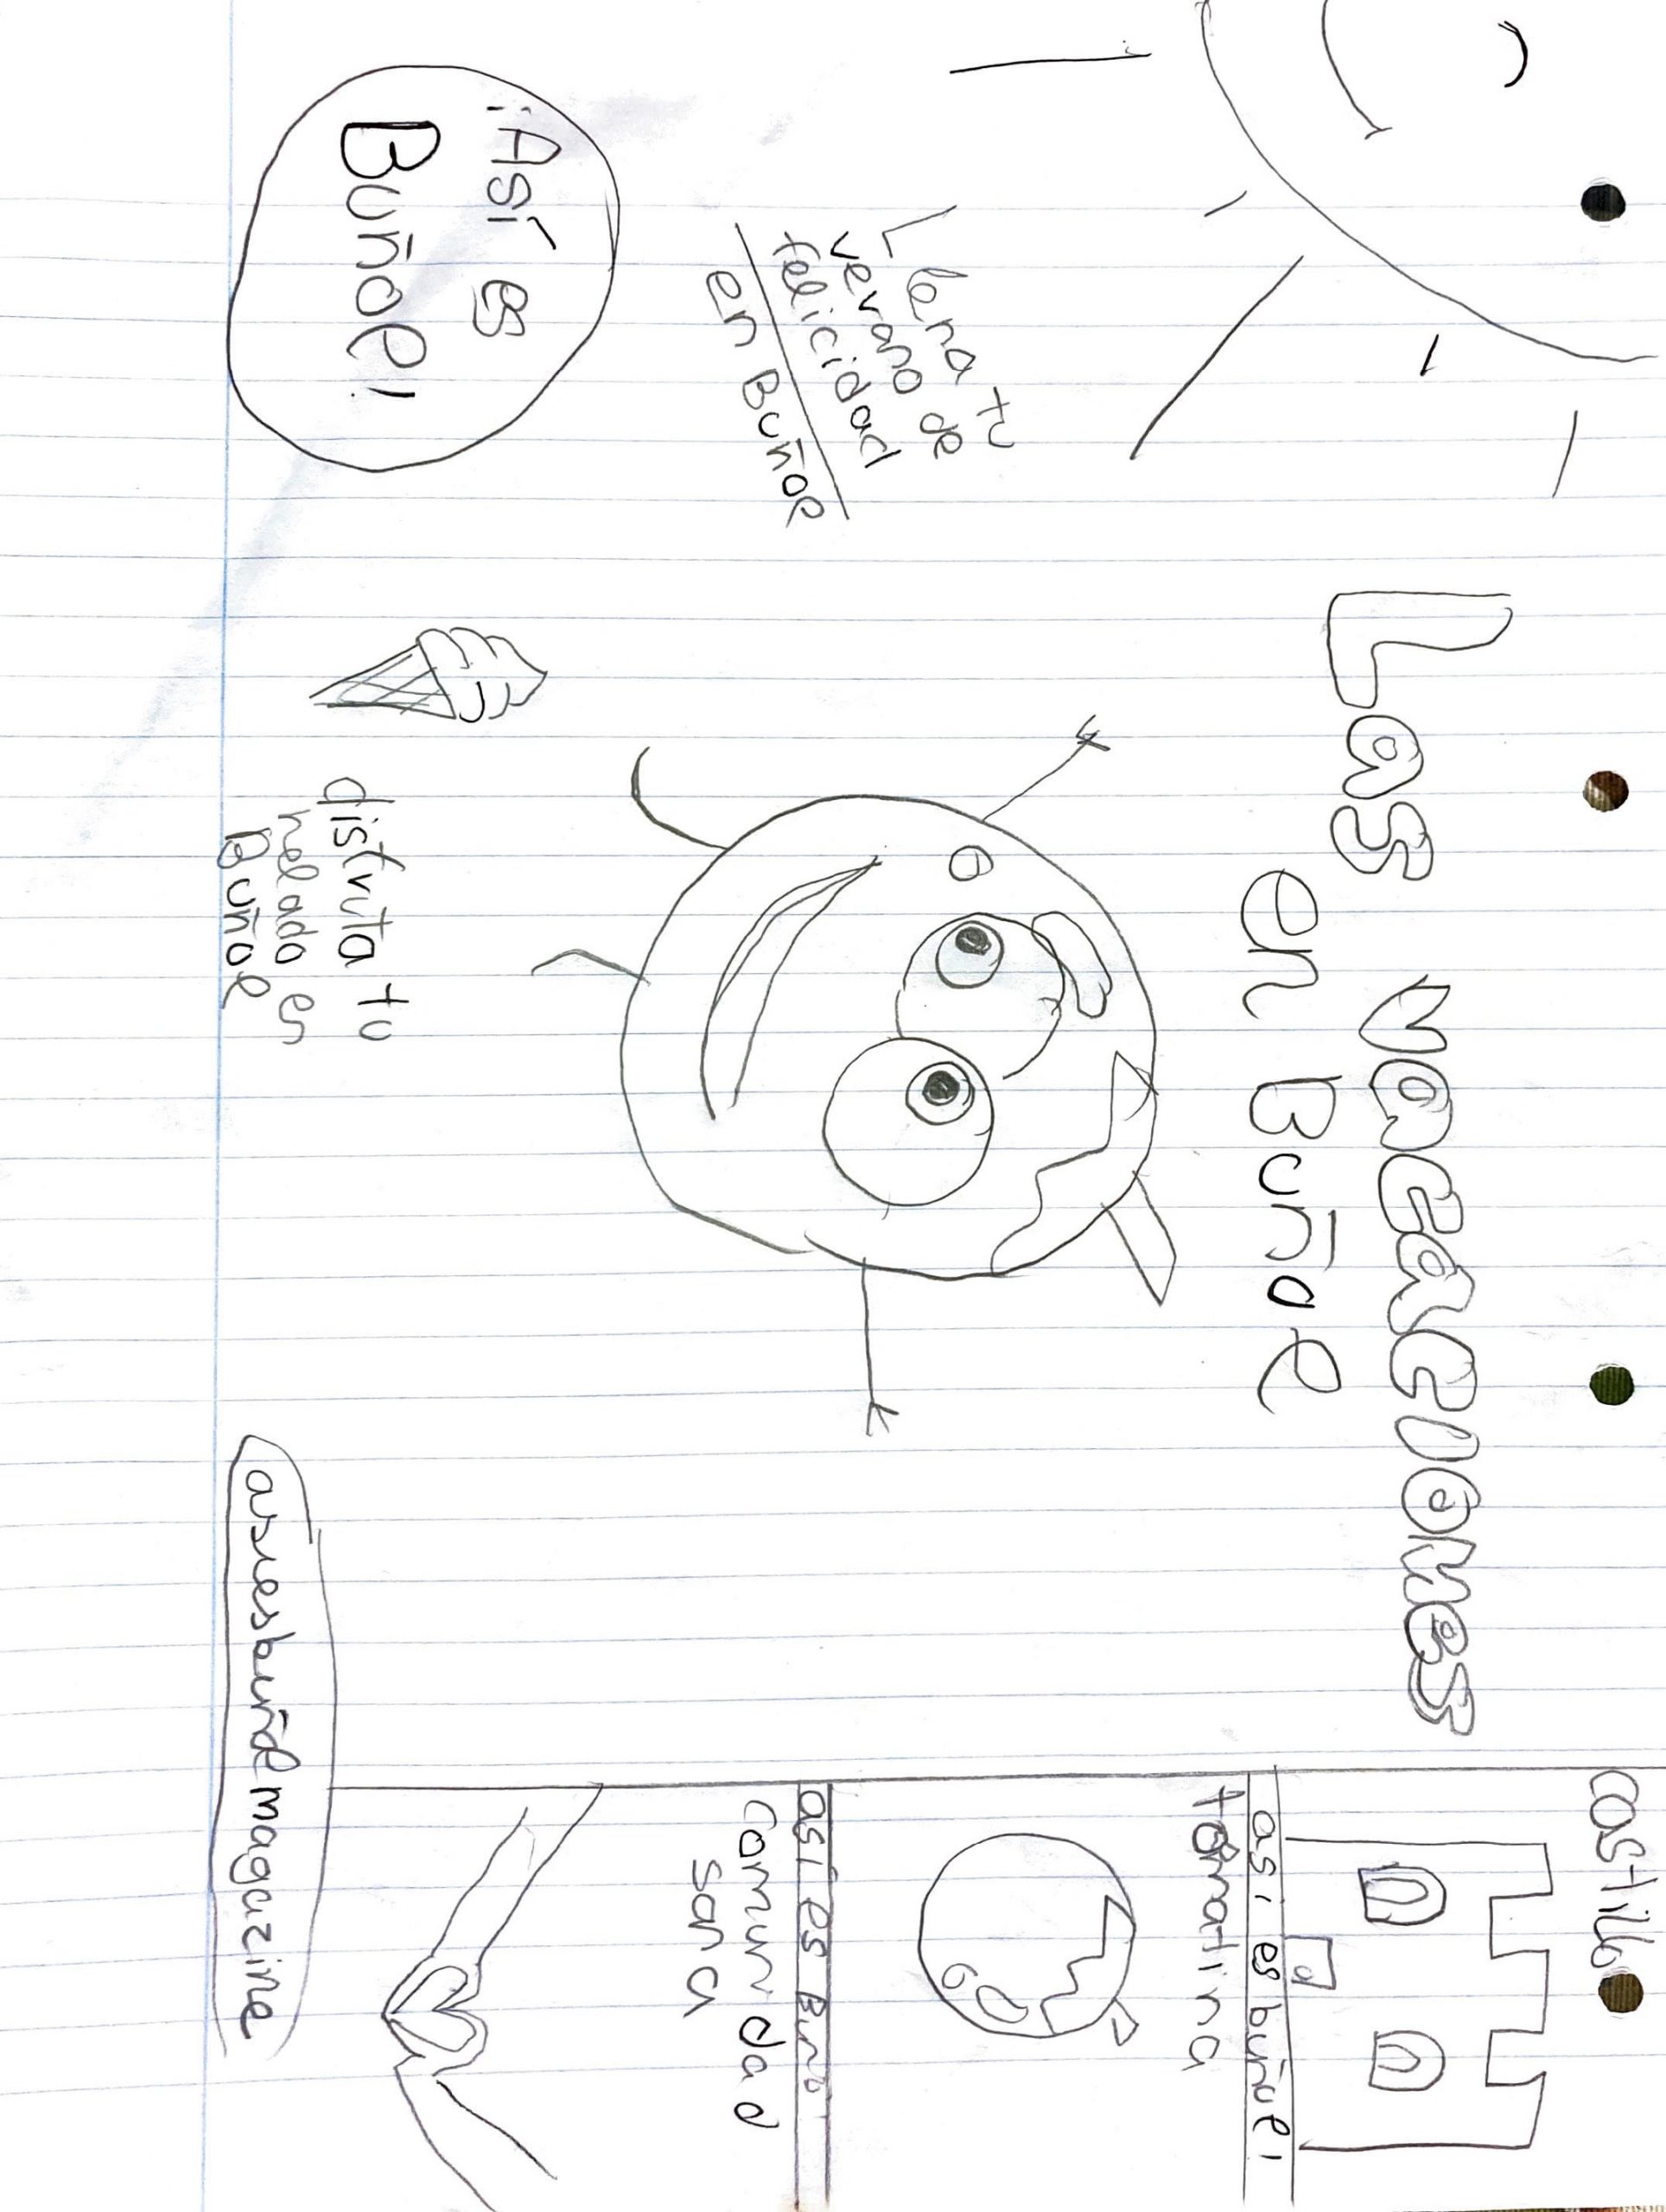 Las vacaciones
en Buñol
Llena tu
verano de
felicidad
en Buñol
¡Así es
Buñol!
disfruta tu
helado en
Buñol
castillo
asi es buñol!
tomatina
asi es Buño
Comunidad
sana
asiesbuñolmagazine